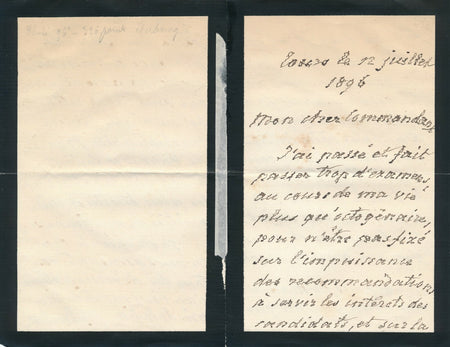 Tours le 12 juillet
1896
Mon cher Commandant
J'ai passé et fait
passer trop d'examens
au cours de ma vie
plus qu'octogénaire,
pour n'être pas fixé
sur l'impuissance
des recommandations
à servir les intérêts des
candidats, et sur la